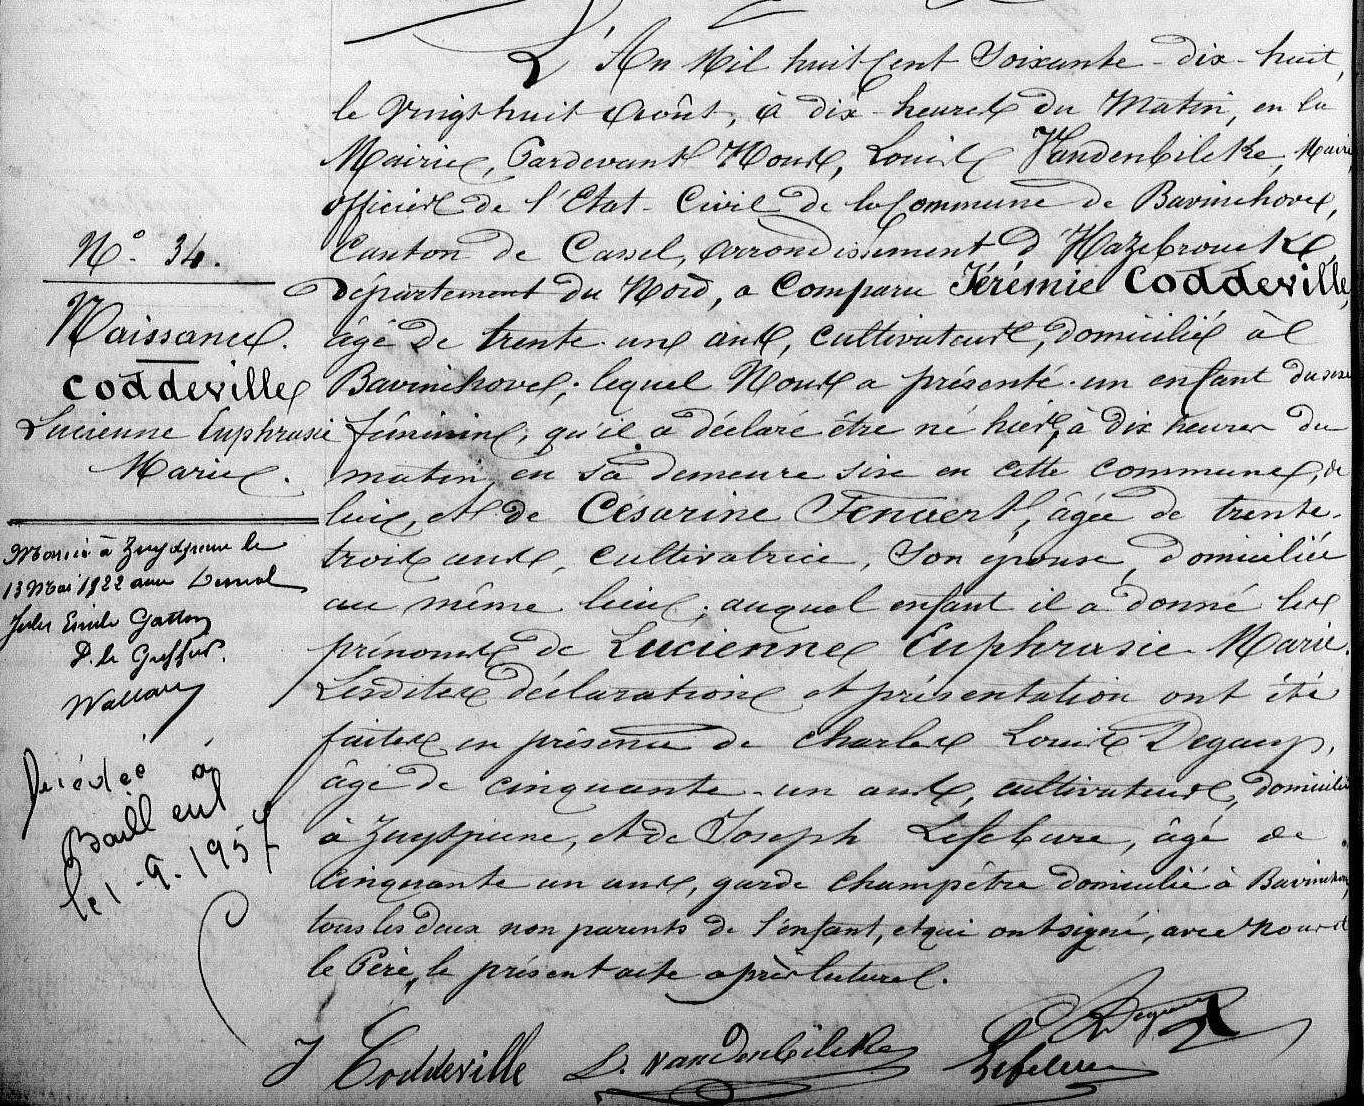 L'An Mil huit Cent Soixante-dix-huit,
le Vingt huit Août, à dix-heures du Matin, en la
Mairie, Pardevant Nous, Louis Vandenbilcke, Maire,
officier de l'Etat-Civil de la Commune de Bavinchove,
Canton de Cassel, arrondissement d'Hazebrouck,
Département du Nord, a Comparu Jérémie Coddeville,
âgé de trente un ans, cultivateur, domicilié à
Bavinchove; lequel Nous a présenté un enfant du sexe
féminin, qu'il a déclaré être né hier, à dix heures du
matin, en sa demeure sise en cette commune, de
lui, et de Césarine Fenaert, âgée de trente-
trois ans, cultivatrice, son épouse, domiciliée
au même lieu; auquel enfant il a donné les
prénoms de Lucienne Euphrasie Marie.
Lesdites déclaration et présentation ont été
faites en présence de Charles Louis Degans,
âgé de cinquante-un ans, cultivateur, domicilié
à Zuytpeene, et de Joseph Lefebvre, âgé de
cinquante un ans, garde champêtre domicilié à Bavinchove,
tous les deux non parents de l'enfant, et qui ont signé, avec nous et
le Père, le présent acte après lecture.
J Coddeville L. Vandenbilcke Lefebvre
N.° 34.
Naissance.
Coddeville
Lucienne Euphrasie
Marie.
Mariée à Zuydpeene le
13 Mai 1922 avec
Jules Emile
D. le Greffier.
Décédée à
Bailleul
le 1-9-1957